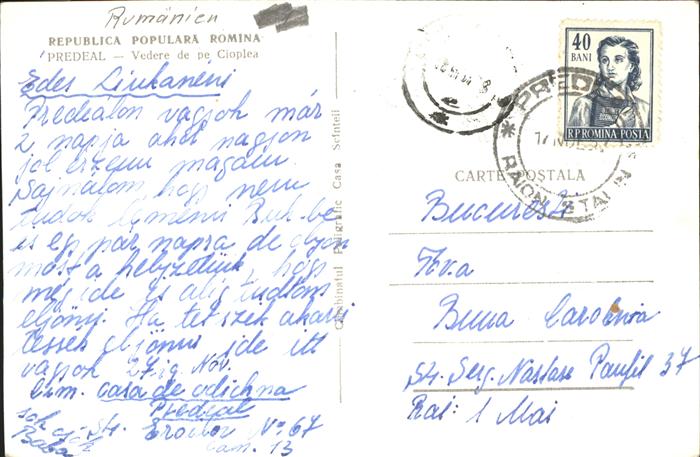 Rumänien
REPUBLICA POPULARĂ ROMINĂ
PREDEAL — Vedere de pe Cioplea
Édes
Predeálon vagyok már
2 napja ahol nagyon
jól érzem magam.
Sajnálom, hogy nem
tudok lemenni Buk-be
és egy pár napra de olyan
most a helyzetünk, hogy
még ide is alig tudtam
eljönni. Ha tetszek akarni
tessék eljönni ide itt
vagyok 27ig Nov.
Cim. casa de odichna
Predeal
sok csók
Baba
Str. Eroilor No 67
cam. 13
Combinatul Poligrafic Casa Scînteii
40
BANI
R.P.ROMINA POSTA
PREDEAL
17 NOV
RAION STALIN
CARTE POȘTALĂ
București
Tov.a
Buna Carolina
Str. Serg. Năstase Panfil 37
Rai: 1 Mai